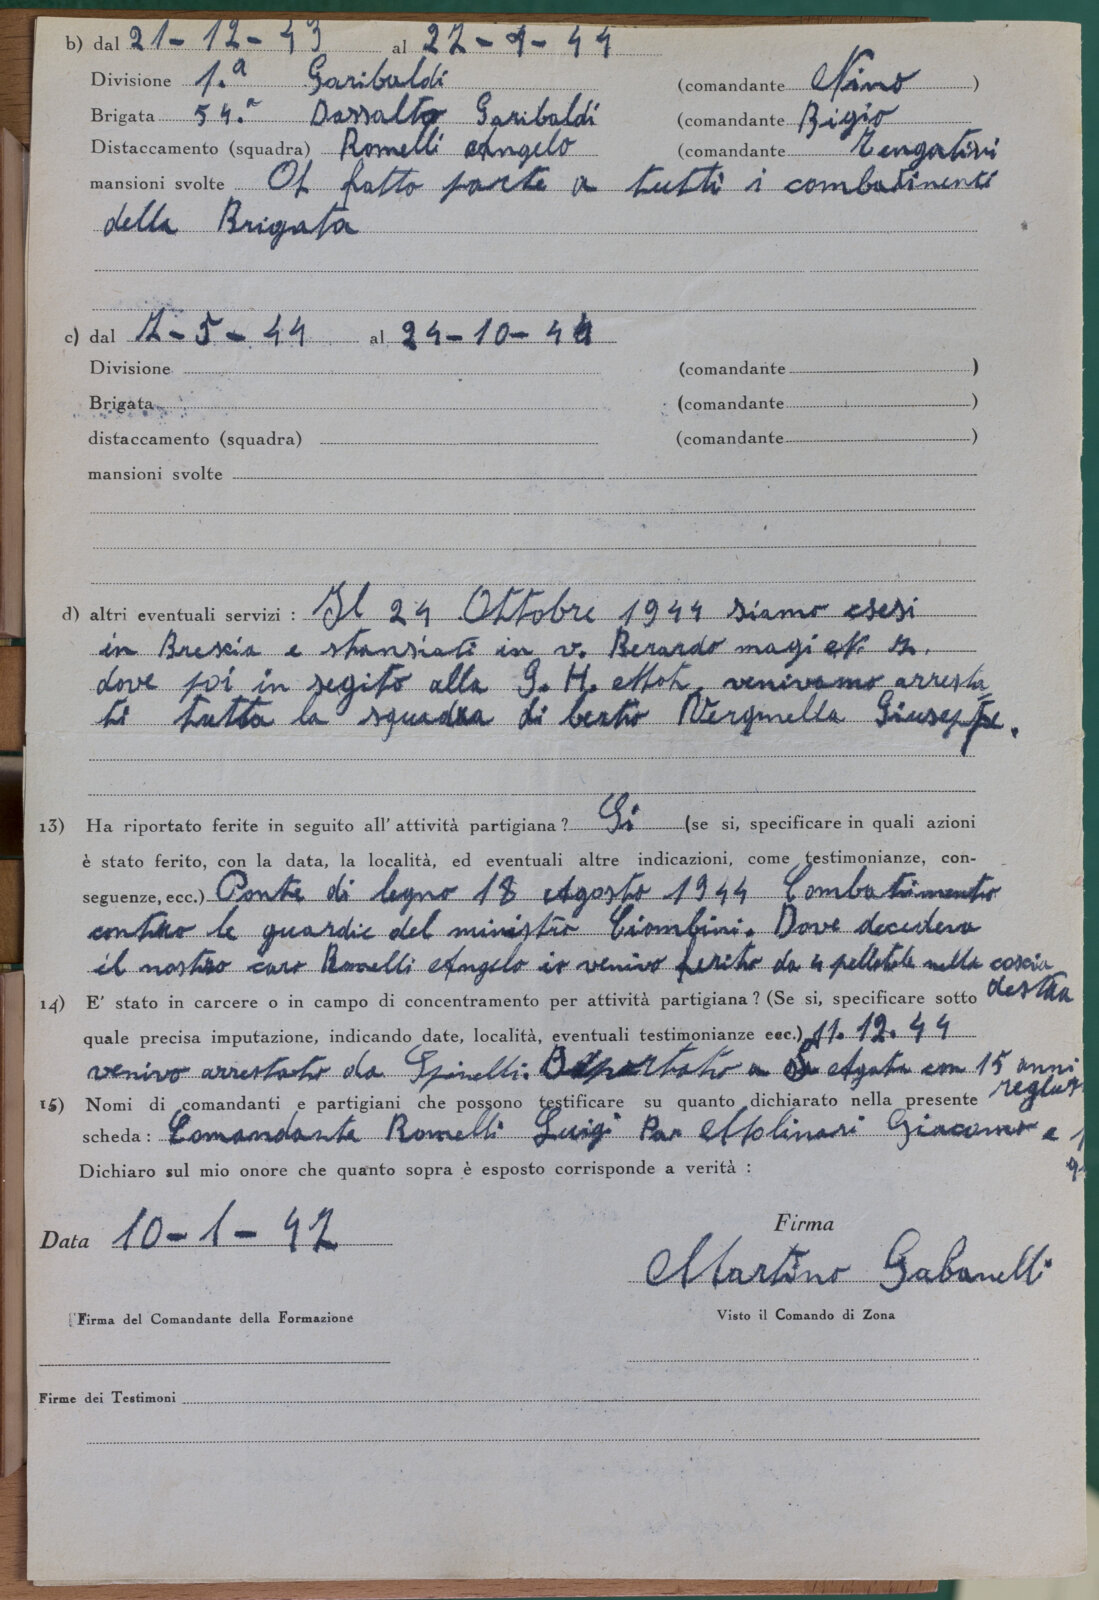 b) dal 21-12-43 al 22-1-44
Divisione 1.ª Garibaldi (comandante Nino )
Brigata 54.ª Dassalto Garibaldi (comandante Bigio )
Distaccamento (squadra) Romelli Angelo (comandante
mansioni svolte fatto parte a tutti i combatimenti
della Brigata
c) dal 1-5-44 al 24-10-44
Divisione (comandante )
Brigata (comandante )
distaccamento (squadra) (comandante )
mansioni svolte
d) altri eventuali servizi : Il 24 Ottobre 1944 siamo scesi
in Brescia e stansiati in v. Berardo magi
dove poi in segito alla venivamo arresta
ti tutta la squadra di bertio Verginella Giuseppe.
13) Ha riportato ferite in seguito all' attività partigiana ? Si (se si, specificare in quali azioni
è stato ferito, con la data, la località, ed eventuali altre indicazioni, come testimonianze, con-
seguenze, ecc.) Ponte di legno 18 Agosto 1944 Combatimento
contro le guardie del ministro Ciombini. Dove decedeva
il nostro caro Romelli Angelo io venivo ferito da 4 pellotole nella coscia
destra
14) E' stato in carcere o in campo di concentramento per attività partigiana ? (Se si, specificare sotto
quale precisa imputazione, indicando date, località, eventuali testimonianze ecc.) 11.12.44
venivo arrestato da Spinelli. Deportato a Agata con 15 anni
15) Nomi di comandanti e partigiani che possono testificare su quanto dichiarato nella presente
scheda : Comandante Romelli Luigi Par Molinari Giacomo e
Dichiaro sul mio onore che quanto sopra è esposto corrisponde a verità :
Data 10-1-47
Firma
Martino Gabanelli
Firma del Comandante della Formazione
Visto il Comando di Zona
Firme dei Testimoni